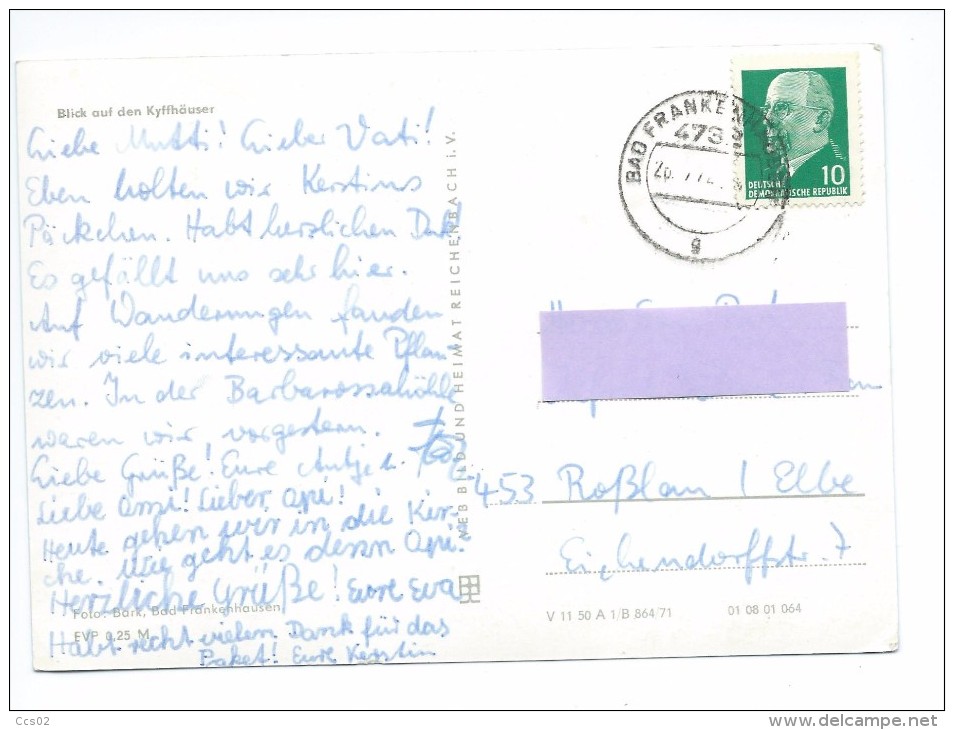 Blick auf den Kyffhäuser
Liebe Mutti! Lieber Vati!
Eben holten wir Kerstins
Päckchen. Habt herzlichen Dank!
Es gefällt uns sehr hier.
Auf Wanderungen fanden
wir viele interessante Pflan-
zen. In der Barbarossahöhle
waren wir vorgestern.
Liebe Grüße! Eure Antje u.
Liebe Omi! Lieber Opi!
Heute gehen wir in die Kir-
che. Wie geht es denn Opi?
Herzliche Grüße! Eure Eva
Foto: Bärk, Bad Frankenhausen
EVP 0,25 M
Habt recht vielen Dank für das
Paket! Eure Kerstin
VEB BILD UND HEIMAT REICHENBACH i. V.
BAD FRANKENHAUSEN
4732
g
10
DEUTSCHE
DEMOKRATISCHE REPUBLIK
453 Roßlau / Elbe
Eichendorffstr. 7
V 11 50 A 1/B 864/71 01 08 01 064
Ccs02
http://www.delcampe.net